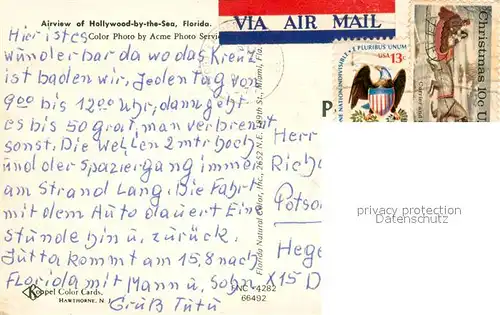 Airview of Hollywood-by-the-Sea, Florida.
Color Photo by Acme Photo Servi
VIA AIR MAIL
E PLURIBUS UNUM
USA 13c
ONE NATION INDIVISIBLE
Christmas 10c U.
Hier ist es
wunderbar da wo das Kreuz
ist baden wir, Jeden Tag von
9oo bis 12oo Uhr, dann geht
es bis 50 grat, man verbrennt
sonst. Die Wellen 2 mtr hoch
und der Spaziergang immer
am Strand Lang. Die Fahrt
mit dem Auto dauert Eine
stunde hin u. zurück.
Jutta kommt am 15.8 nach
Florida mit Mann u. Sohn
Gruß Tutu
Herr
Richa
Potso
Hege
X15 D
Florida Natural Color, Inc., 2652 N.E. 189th St., Miami, Fla.
Koppel Color Cards.
Hawthorne, N. J.
FNC-4282
66492
privacy protection
Datenschutz